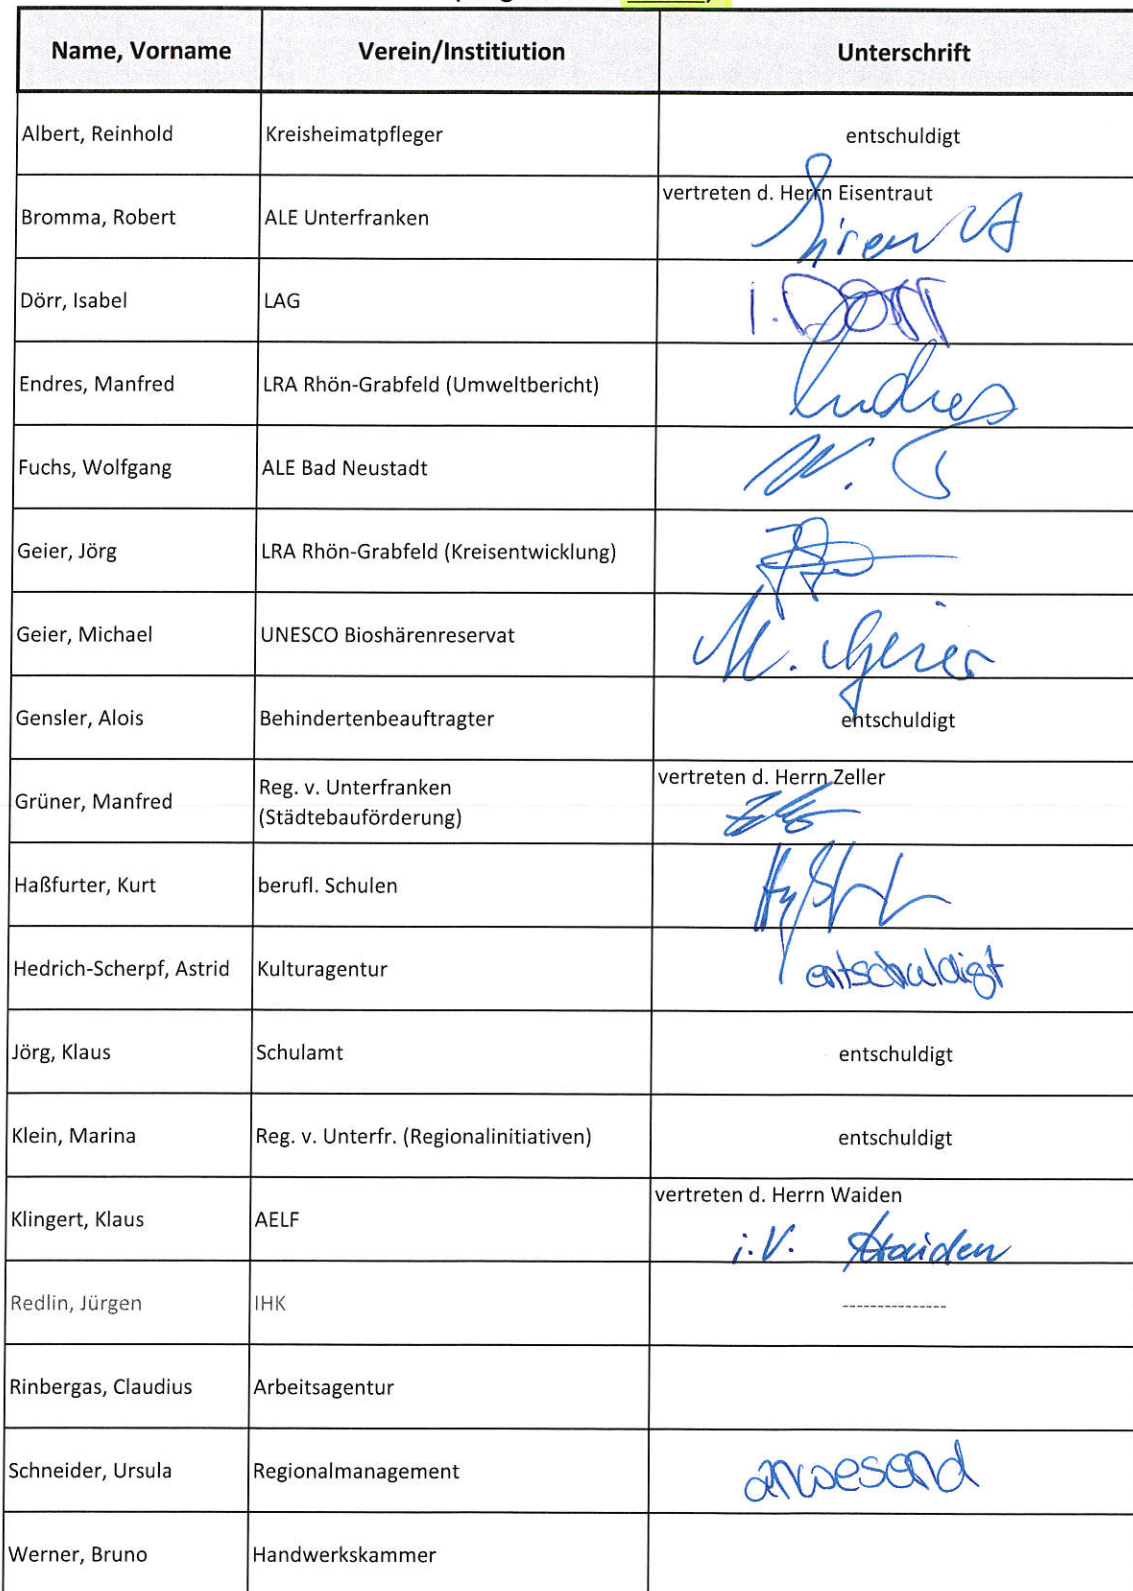 Name, Vorname Verein/Institiution Unterschrift
Albert, Reinhold Kreisheimatpfleger entschuldigt
vertreten d. Herrn Eisentraut
Bromma, Robert ALE Unterfranken
Dörr, Isabel LAG I. Dörr
Endres, Manfred LRA Rhön-Grabfeld (Umweltbericht) Endres
Fuchs, Wolfgang ALE Bad Neustadt W.
Geier, Jörg LRA Rhön-Grabfeld (Kreisentwicklung)
Geier, Michael UNESCO Bioshärenreservat M. Geier
Gensler, Alois Behindertenbeauftragter entschuldigt
vertreten d. Herrn Zeller
Grüner, Manfred Reg. v. Unterfranken
(Städtebauförderung)
Haßfurter, Kurt berufl. Schulen
Hedrich-Scherpf, Astrid Kulturagentur entschuldigt
Jörg, Klaus Schulamt entschuldigt
Klein, Marina Reg. v. Unterfr. (Regionalinitiativen) entschuldigt
vertreten d. Herrn Waiden
Klingert, Klaus AELF i.V. Waiden
Redlin, Jürgen IHK ---------------
Rinbergas, Claudius Arbeitsagentur
Schneider, Ursula Regionalmanagement anwesend
Werner, Bruno Handwerkskammer